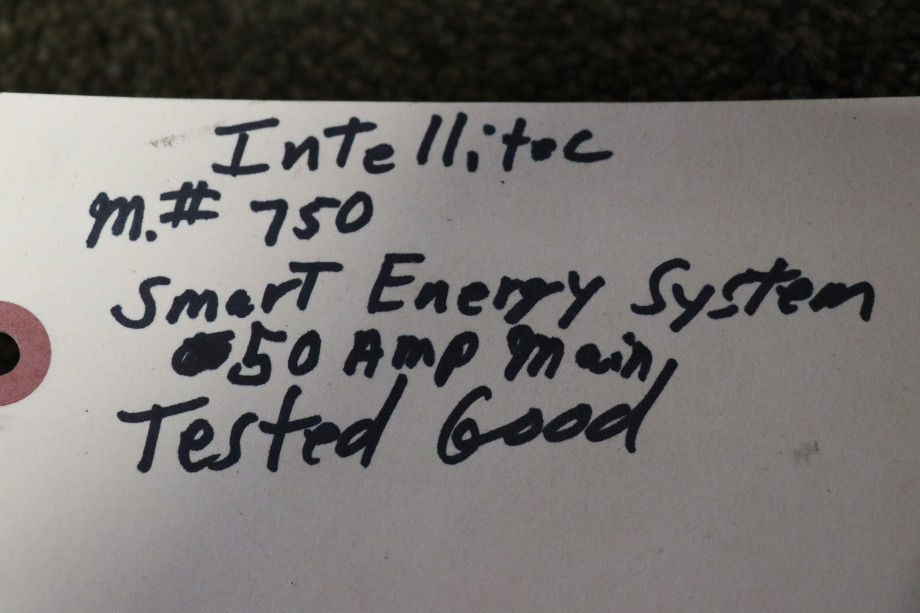 Intellitec
M.# 750
Smart Energy System
50 Amp Main
Tested Good